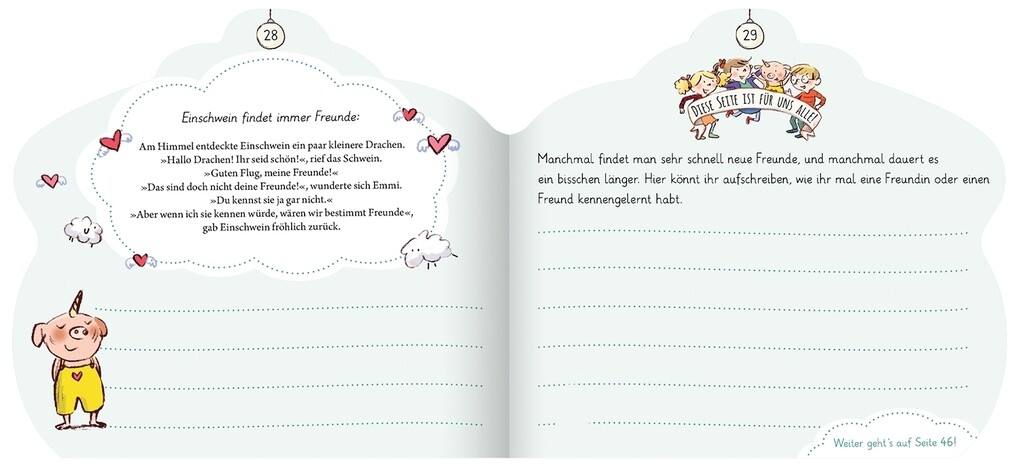 28
Einschwein findet immer Freunde:
Am Himmel entdeckte Einschwein ein paar kleinere Drachen.
»Hallo Drachen! Ihr seid schön!«, rief das Schwein.
»Guten Flug, meine Freunde!«
»Das sind doch nicht deine Freunde!«, wunderte sich Emmi.
»Du kennst sie ja gar nicht.«
»Aber wenn ich sie kennen würde, wären wir bestimmt Freunde«,
gab Einschwein fröhlich zurück.
29
DIESE SEITE IST FÜR UNS ALLE!
Manchmal findet man sehr schnell neue Freunde, und manchmal dauert es
ein bisschen länger. Hier könnt ihr aufschreiben, wie ihr mal eine Freundin oder einen
Freund kennengelernt habt.
Weiter geht's auf Seite 46!